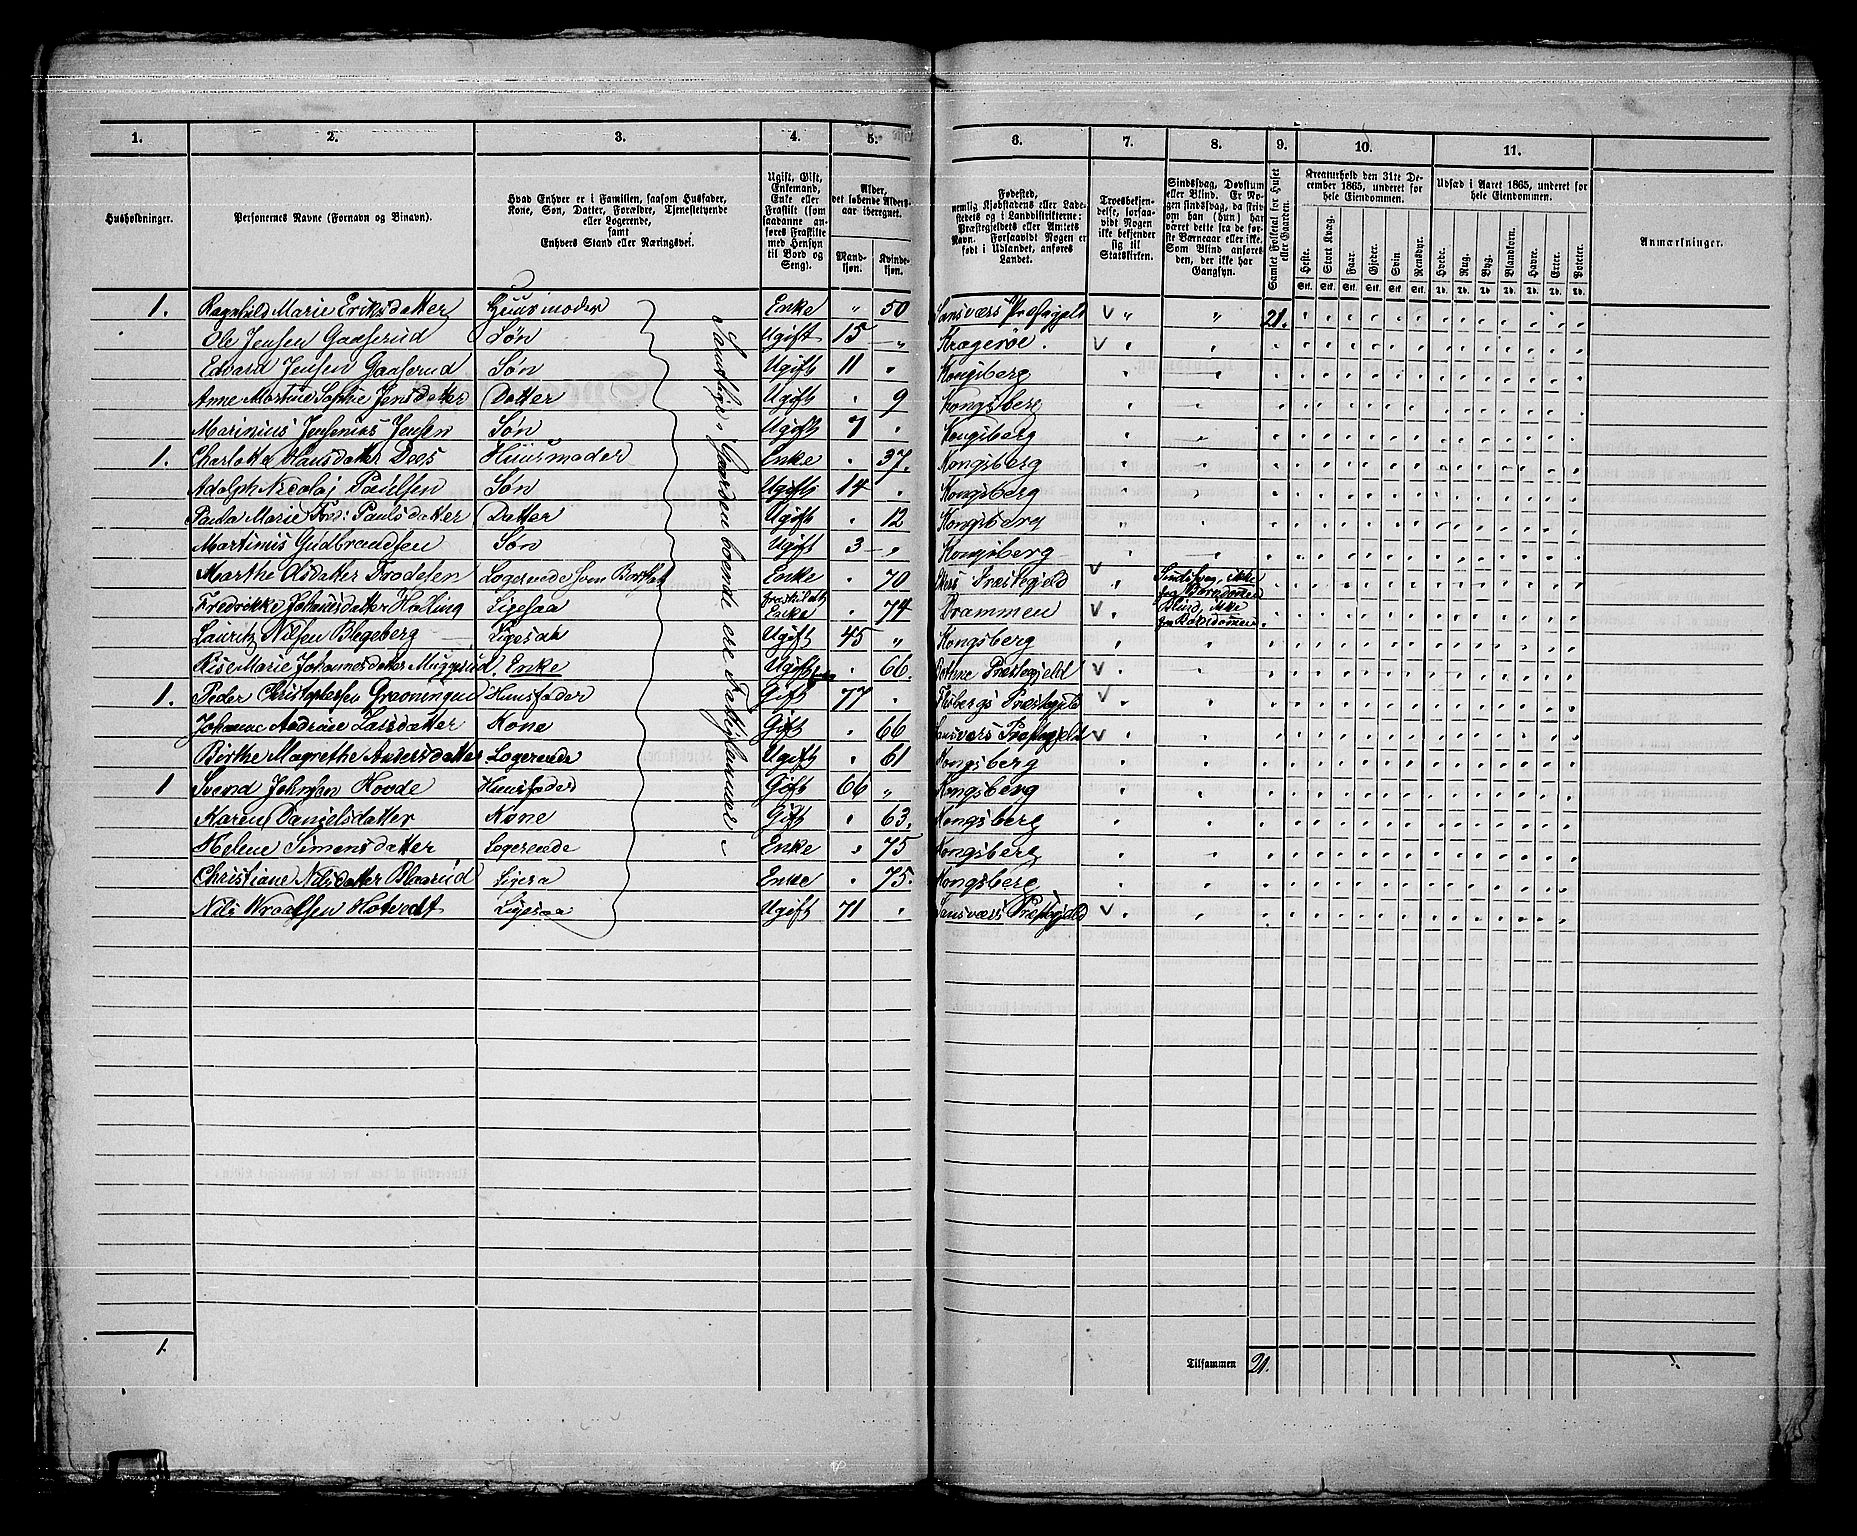 1. 2. 3. 4. 5. 6. 7. 8. 9. 10. 11.
Husholdninger.
Personernes Navne (Fornavn og Binavn).
Hvad Enhver er i Familien, saasom Husfader,
Kone, Søn, Datter, Forældre, Tjenestetyende
eller Logerende,
samt
Enhvers Stand eller Næringsvei.
Ugift, Gift,
Enkemand,
Enke eller
Fraskilt (som
saadanne an-
føres Fraskilte
med Hensyn
til Bord og
Seng).
Alder,
det løbende Alders-
aar iberegnet.
Mand-
kjøn.
Kvinde-
kjøn.
Fødested,
nemlig Kjøbstadens eller Lade-
stedets og i Landdistrikterne:
Præstegjeldets eller Amtets
Navn. Forsaavidt Nogen er
født i Udlandet, anføres
Landet.
Troesbekjen-
delse, forsaa-
vidt Nogen
ikke bekjender
sig til
Statskirken.
Sindssvag, Døvstum
eller Blind. Er No-
gen sindssvag, da skriv
om han (hun) har
været dette fra de før-
ste Barneaar eller ikke.
Som Blind anføres
den, der ikke har
Gangsyn.
Samlet Folketal for Huset
eller Gaarden.
Kreaturhold den 31te De-
cember 1865, underet for
hele Eiendommen.
Heste. Stort Kvæg. Faar. Gjeder. Svin Rensdyr.
Stk. Stk. Stk. Stk. Stk. Stk.
Udsæd i Aaret 1865, underet for
hele Eiendommen.
Hvede. Rug. Byg. Blandkorn. Havre. Erter. Poteter.
Td. Td. Td. Td. Td. Td. Td.
Anmærkninger.
1. Ragnhild Marie Eriksdatter Huusmoder Enke " 50 Sansværs Præstegjeld V " " 21.
Ole Jensen Gaaserud Søn Ugift 15 " Kragerøe. V
Edvard Jensen Gaaserud Søn Ugift 11 " Kongsberg
Anne Martine Sophie Jensdatter Datter Ugift " 9 Kongsberg
Marinius Jensenius Jensen Søn Ugift 7 " Kongsberg
1. Charlotte Hansdatter Dees Huusmoder Enke " 37. Kongsberg
Adolph Nicolaj Paulsen Søn Ugift 14 " Kongsberg
Paula Marie Fred: Paulsdatter Datter Ugift " 12 Kongsberg
Martinus Gudbrandsen Søn Ugift 3 " Kongsberg
Marthe Olsdatter Logerende Enke " 70 Ekers Præstegjeld V Sindsvag, ikke
fra Barndommen
Fredrikke Johansdatter Halling Ligesaa fraskildt Enke " 74 Drammen V Blind, ikke
fra Barndommen
Lauritz Nilsen Blegeberg Ligesaa Ugift 45 " Kongsberg
Marie Johannesdatter Muggerud. Enke Ugift " 66. Præstegjeld V
1. Peder Christophersen Huusfader Gift 77 " Flesbergs Præstegjeld V
Johanne Andrine Larsdatter Kone Gift " 66 Sansværs Præstegjeld V
Birthe Magrethe Andersdatter Logerende Ugift " 61 Kongsberg
1 Svend Johnsen Hovde Huusfader Gift 66 " Kongsberg
Karen Danielsdatter Kone Gift " 63. Kongsberg
Helene Simensdatter Logerende Enke " 75 Kongsberg
Christiane Nilsdatter Blaarud Ligesa Enke " 75. Kongsberg
Nils Wraalsen Hotvedt Ligesaa Ugift 71 " Sansværs Præstegjeld V
Samtlige i Gaarden boende ere Fattiglemmer
1. Tilsammen 21.